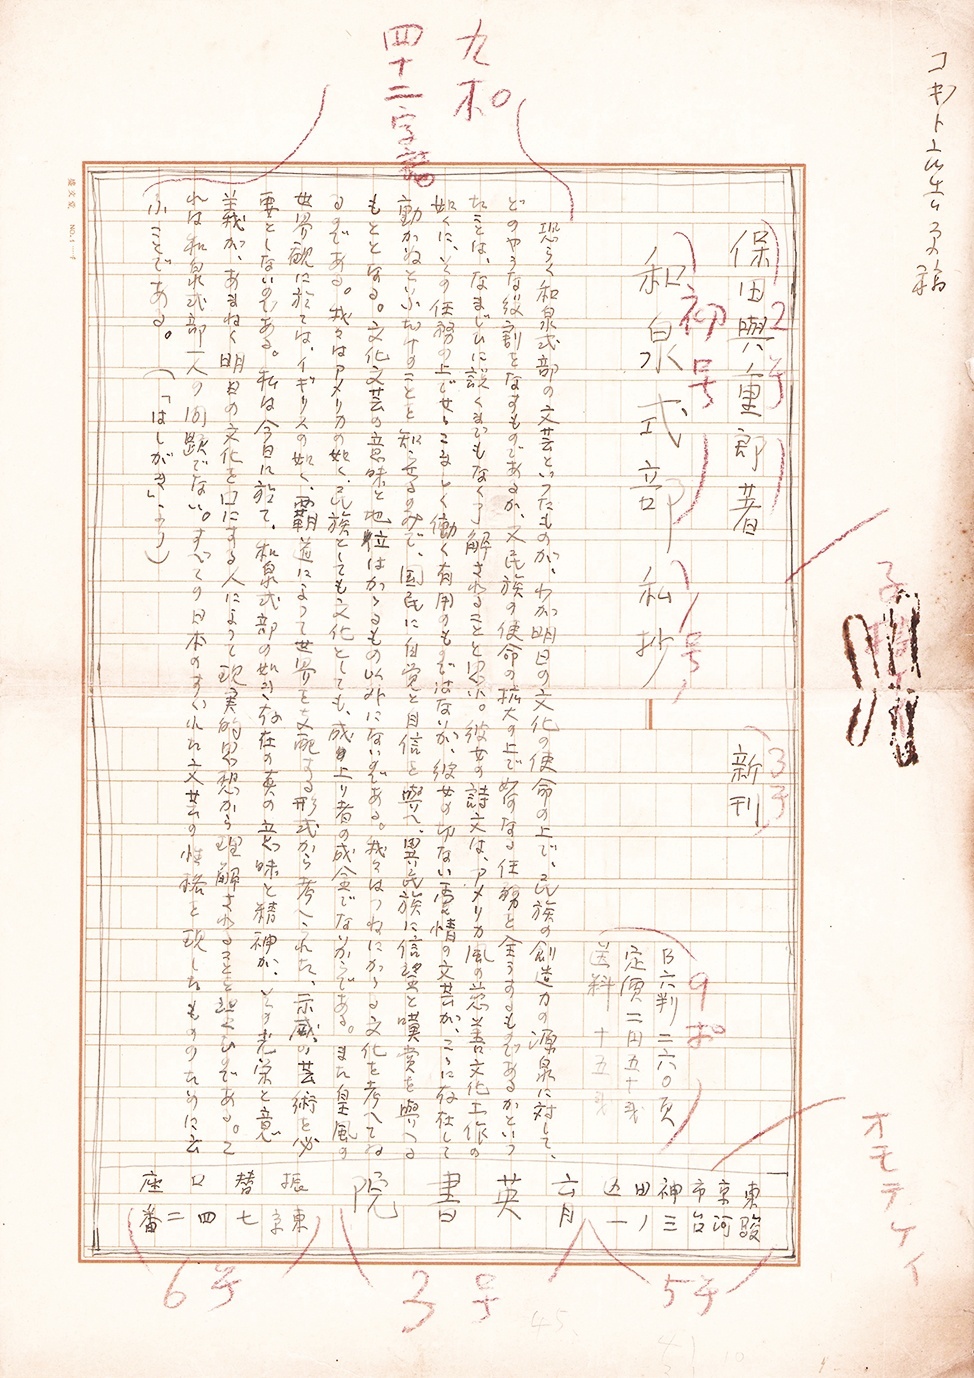 コギト上半ころ稿
九ポ
四十二字詰
2号
保田與重郎著
3号
新刊
初号
1号
和泉式部私抄
9ポ
B六判 二六〇頁
定價 二円五十銭
送料 十五銭
恐らく和泉式部の文芸といつたものが、わが明日の文化の使命の上で、民族の創造力の源泉に対して、
どのやうな役割をなすものであるか、又民族の使命の拡大の上で如何なる任務を全うするものであるかといつ
たことは、なまじひに説くまでもなく了解されることと思ふ。彼女の詩文は、アメリカ風の慈善文化工作の
如くに、その任務の上でせゝこましく働く有用のものではないが、彼女の切ない哀情の文芸が、こゝに存在して
動かぬといふだけのことを知らせるのみで、国民に自覚と自信を與へ、異民族に信望と嘆賞を與へる
もととなる。文化文芸の意味と地位はかゝるもの以外にないのである。我々はつねにかゝる文化を考へてゐ
るのである。我々はアメリカの如く、民族としても文化としても、成り上り者の成金でないからである。また皇風の
世界観に於ては、イギリスの如く、覇道によつて世界を支配する形式から考へられた、示威の芸術を必
要としないのである。私は今日に於て、和泉式部の如き存在の真の意味と精神が、その光栄と意
義が、あまねく明日の文化を口にする人によつて現実的思想から理解されることを望むのである。こ
れは和泉式部一人の問題でない。すべての日本のすぐれた文芸の性格を現したもののために云
ふことである。（「はしがき」より）
東京市神田
駿河台三ノ一
六月
英書院
振替口座
東京七四二番
5号
3号
6号
オモテケイ
盛文堂 NO.1
45